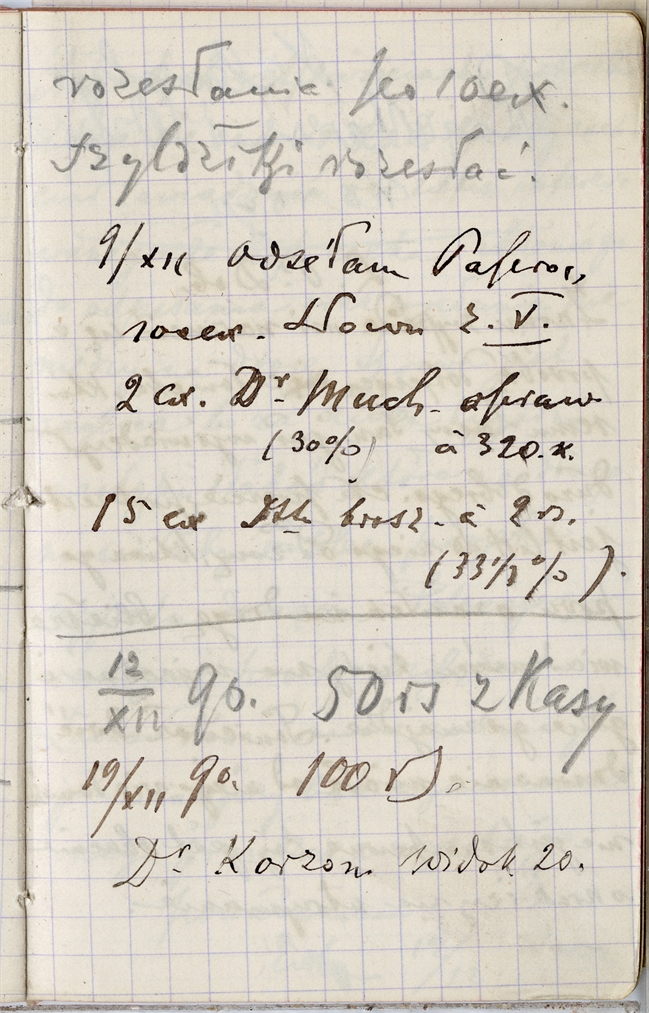 rozesłania po 10 ex.
Szyldziki rozesłać.
9/XII Odsełam
10 ex. Słown z. V.
2 ex. Dr. Much. opraw
(30%) à 320.x.
15 ex brosz. à 2 rs.
(33⅓%).
12/XII 90. 50 rs z Kasy
19/XII 90. 100 rs.
Dr. Korzon. Widok 20.